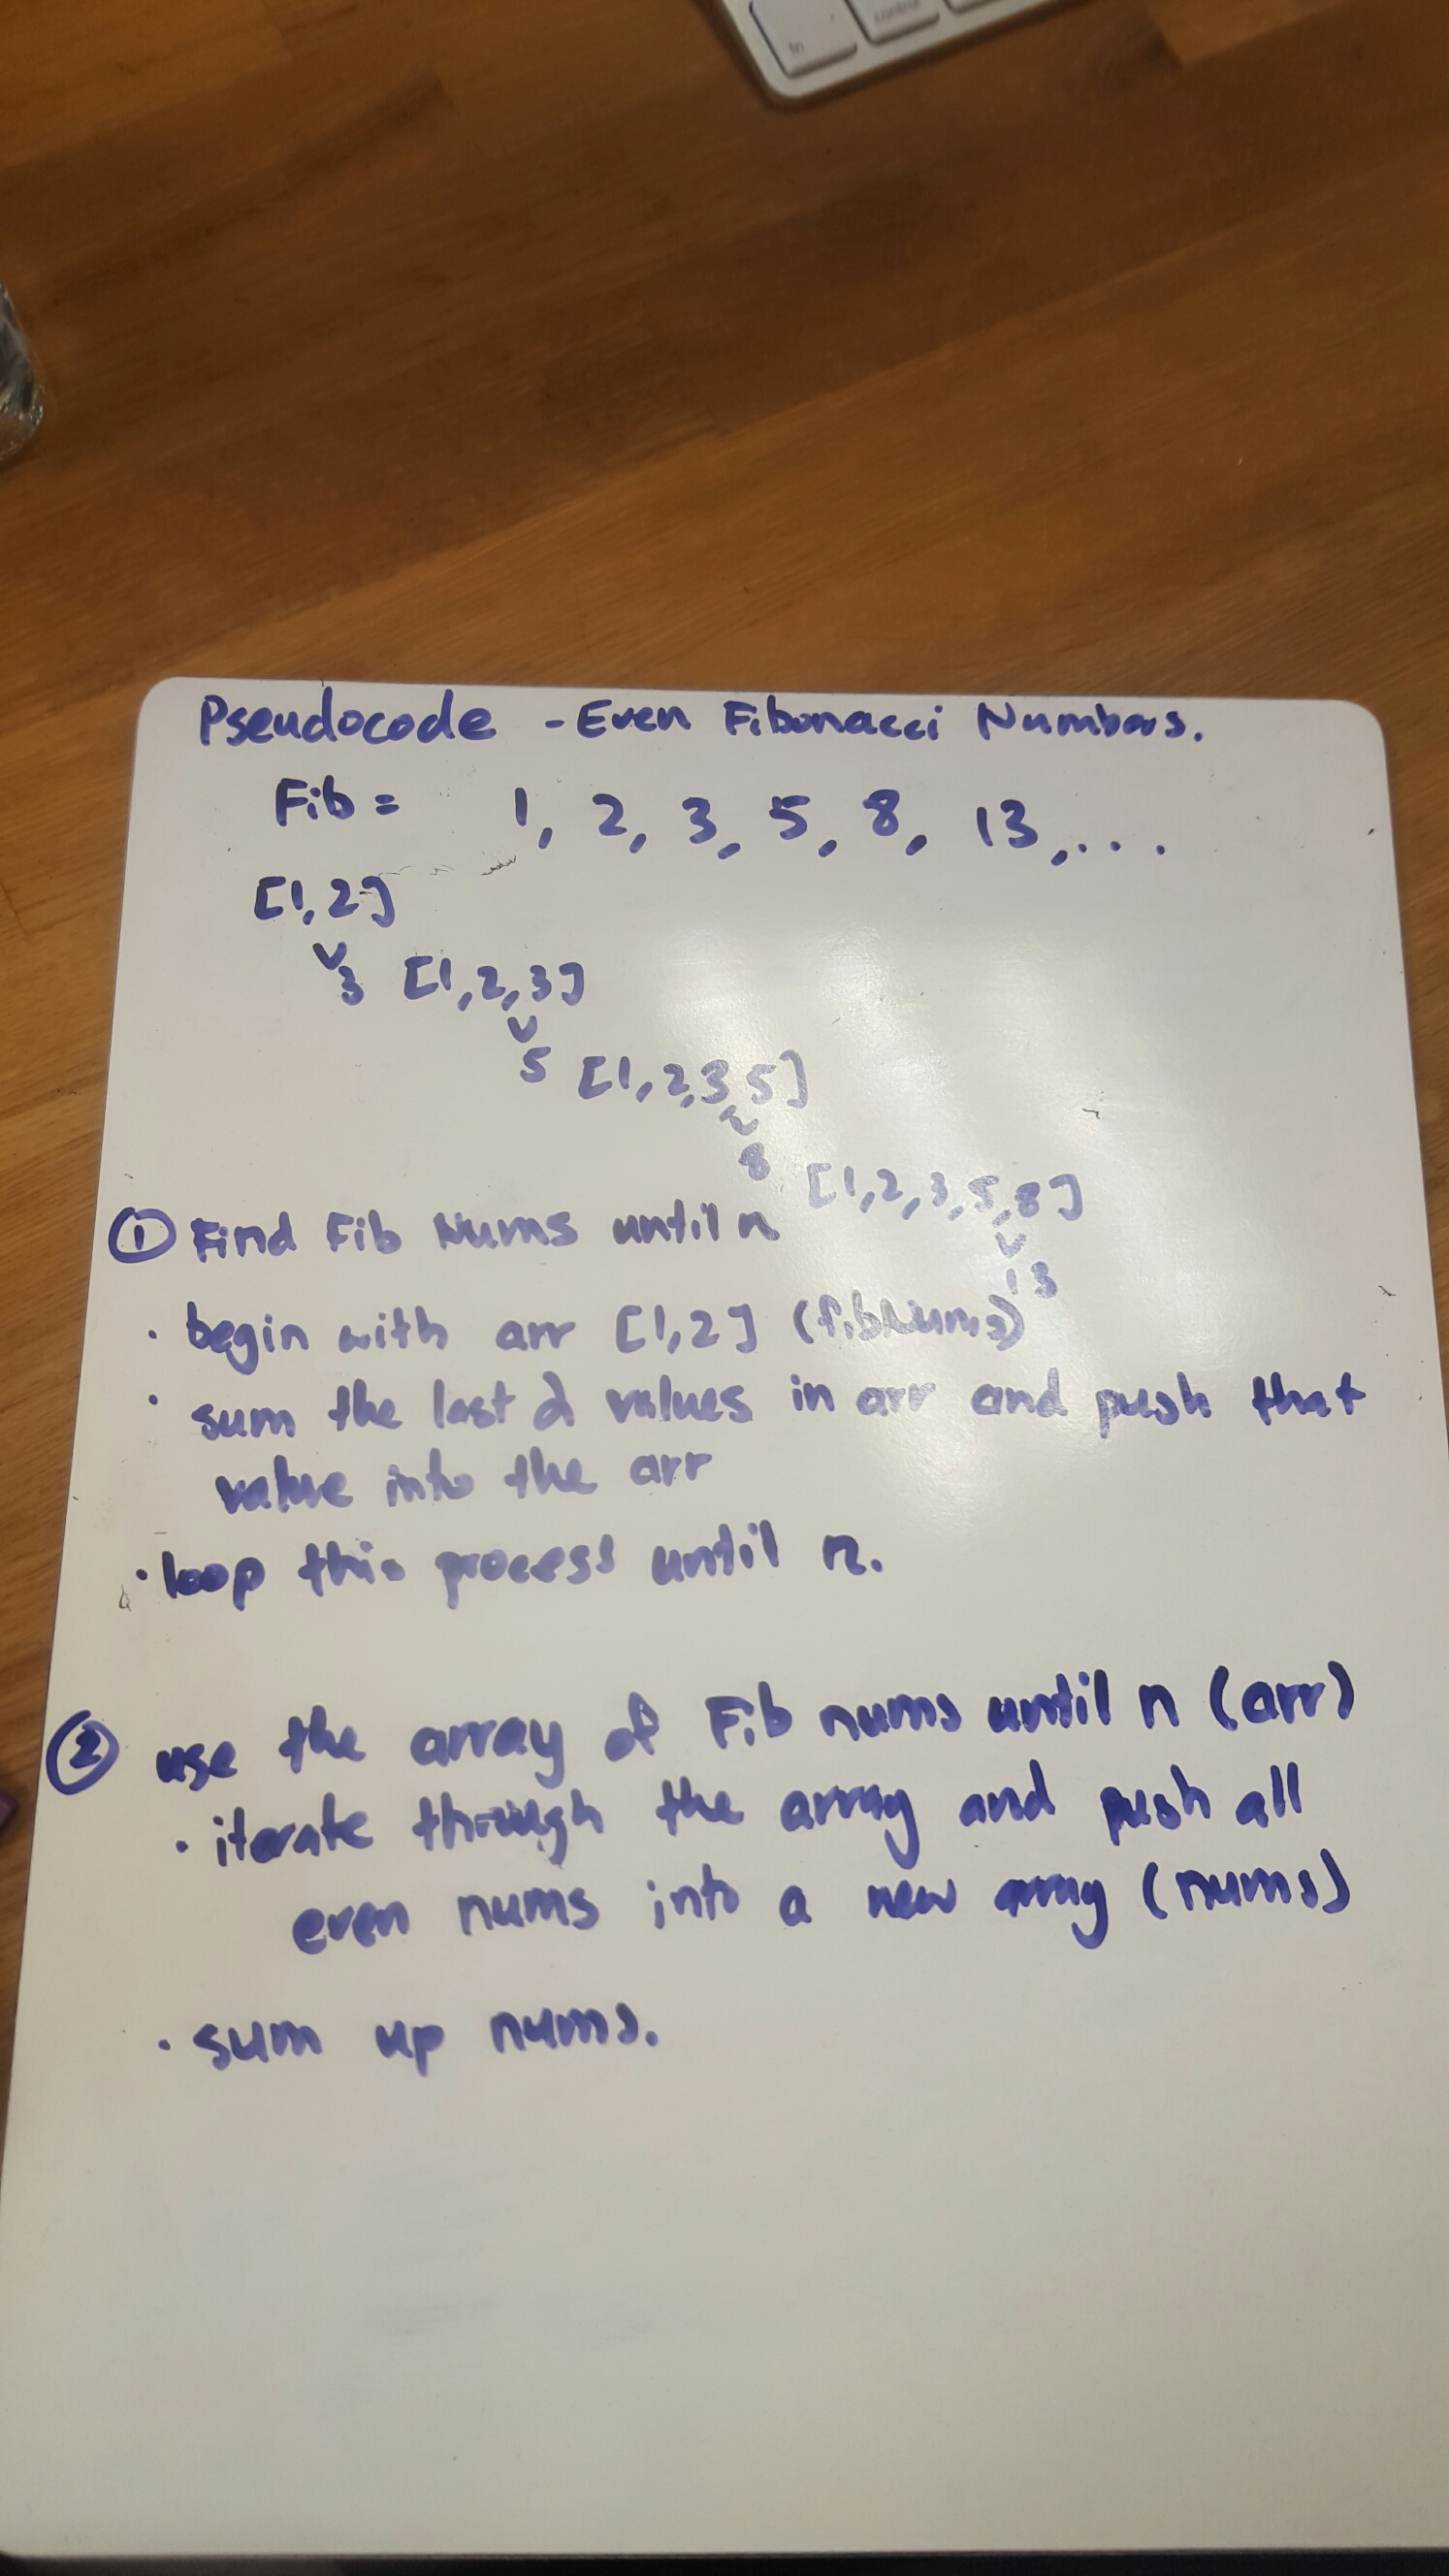 fn
control
Pseudocode - Even Fibonacci Numbers.
Fib = 1, 2, 3, 5, 8, 13, ...
[1,2]
3 [1,2,3]
5 [1,2,3,5]
8 [1,2,3,5,8]
13
① Find Fib Nums until n
· begin with arr [1,2] (fibNums)
· sum the last 2 values in arr and push that
value into the arr
· loop this process until n.
② use the array of Fib nums until n (arr)
· iterate through the array and push all
even nums into a new array (nums)
· sum up nums.